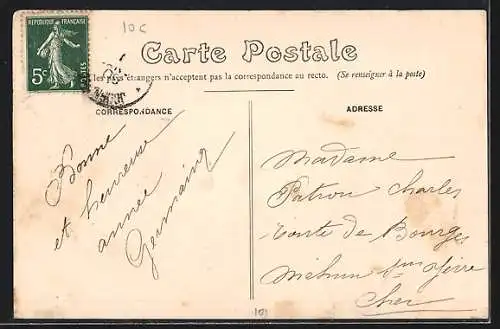 10 c
REPUBLIQUE FRANÇAISE
5c
POSTES
Carte Postale
les pays étrangers n'acceptent pas la correspondance au recto. (Se renseigner à la poste)
CORRESPONDANCE
Bonne
et heureuse
année
Germaine
ADRESSE
Madame
Patron Charles
route de Bourges
Mehun sur Yèvre
Cher
101